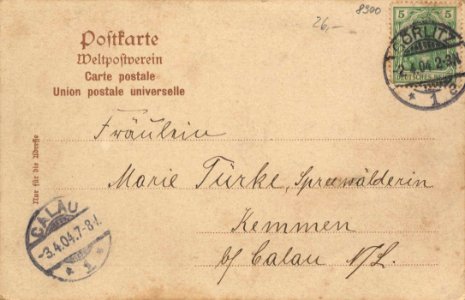 26,-
8900
Postkarte
Weltpostverein
Carte postale
Union postale universelle
5 5
GÖRLITZ
2.4.04.2-3N.
* 1 a
Fräulein
Marie Türke, Spreewälderin
Kemmen
b/ Calau N/L.
Nur für die Adresse
CALAU
-3.4.04.7-8V.
* 1 *